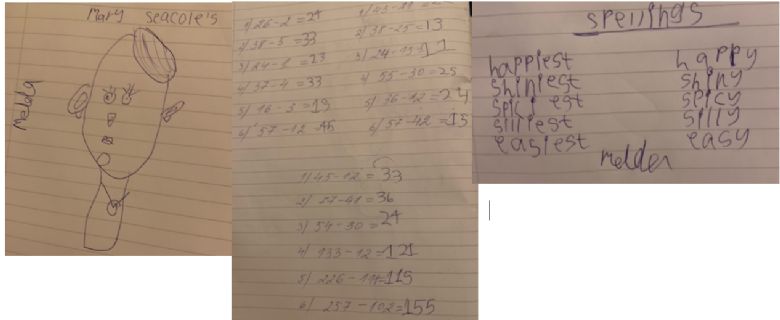 Mary seacole's
Melda
1) 26-2 = 24
2) 38-5 = 33
4) 37-4 = 33
5) 16-3 = 13
6) 57-12 = 45
2) 38-25 = 13
4) 55-30 = 25
5) 36-12 = 24
6) 57-42 = 15
1) 45-12 = 33
3) 54-30 = 24
4) 133-12 = 121
6) 257-102 = 155
spellings
happiest happy
shiniest shiny
spiciest spicy
silliest silly
easiest easy
Melda